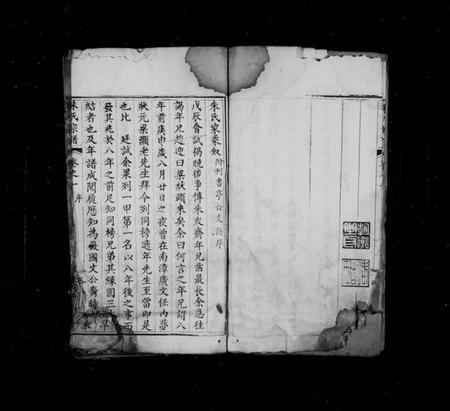 朱氏家乘叙 附刊書亭公支譜序
戊辰會試揭曉後爭傳朱太齋年兄齒最長余急往
謁年兄趨迎曰梁狀頭來矣余曰何言之年兄謂八
年前庚申歲八月廿日之夜曾在南漳廣文任內夢
狀元梁灝老先生拜今到同榜適年先生至當即是
也比 廷試余果列一甲第一名以八年後之事而
發其兆於八年之前足知同榜兄弟其緣固三生早
結者也及年譜成閱履歷知為徽國文公裔時
朱氏宗譜 卷之一 序